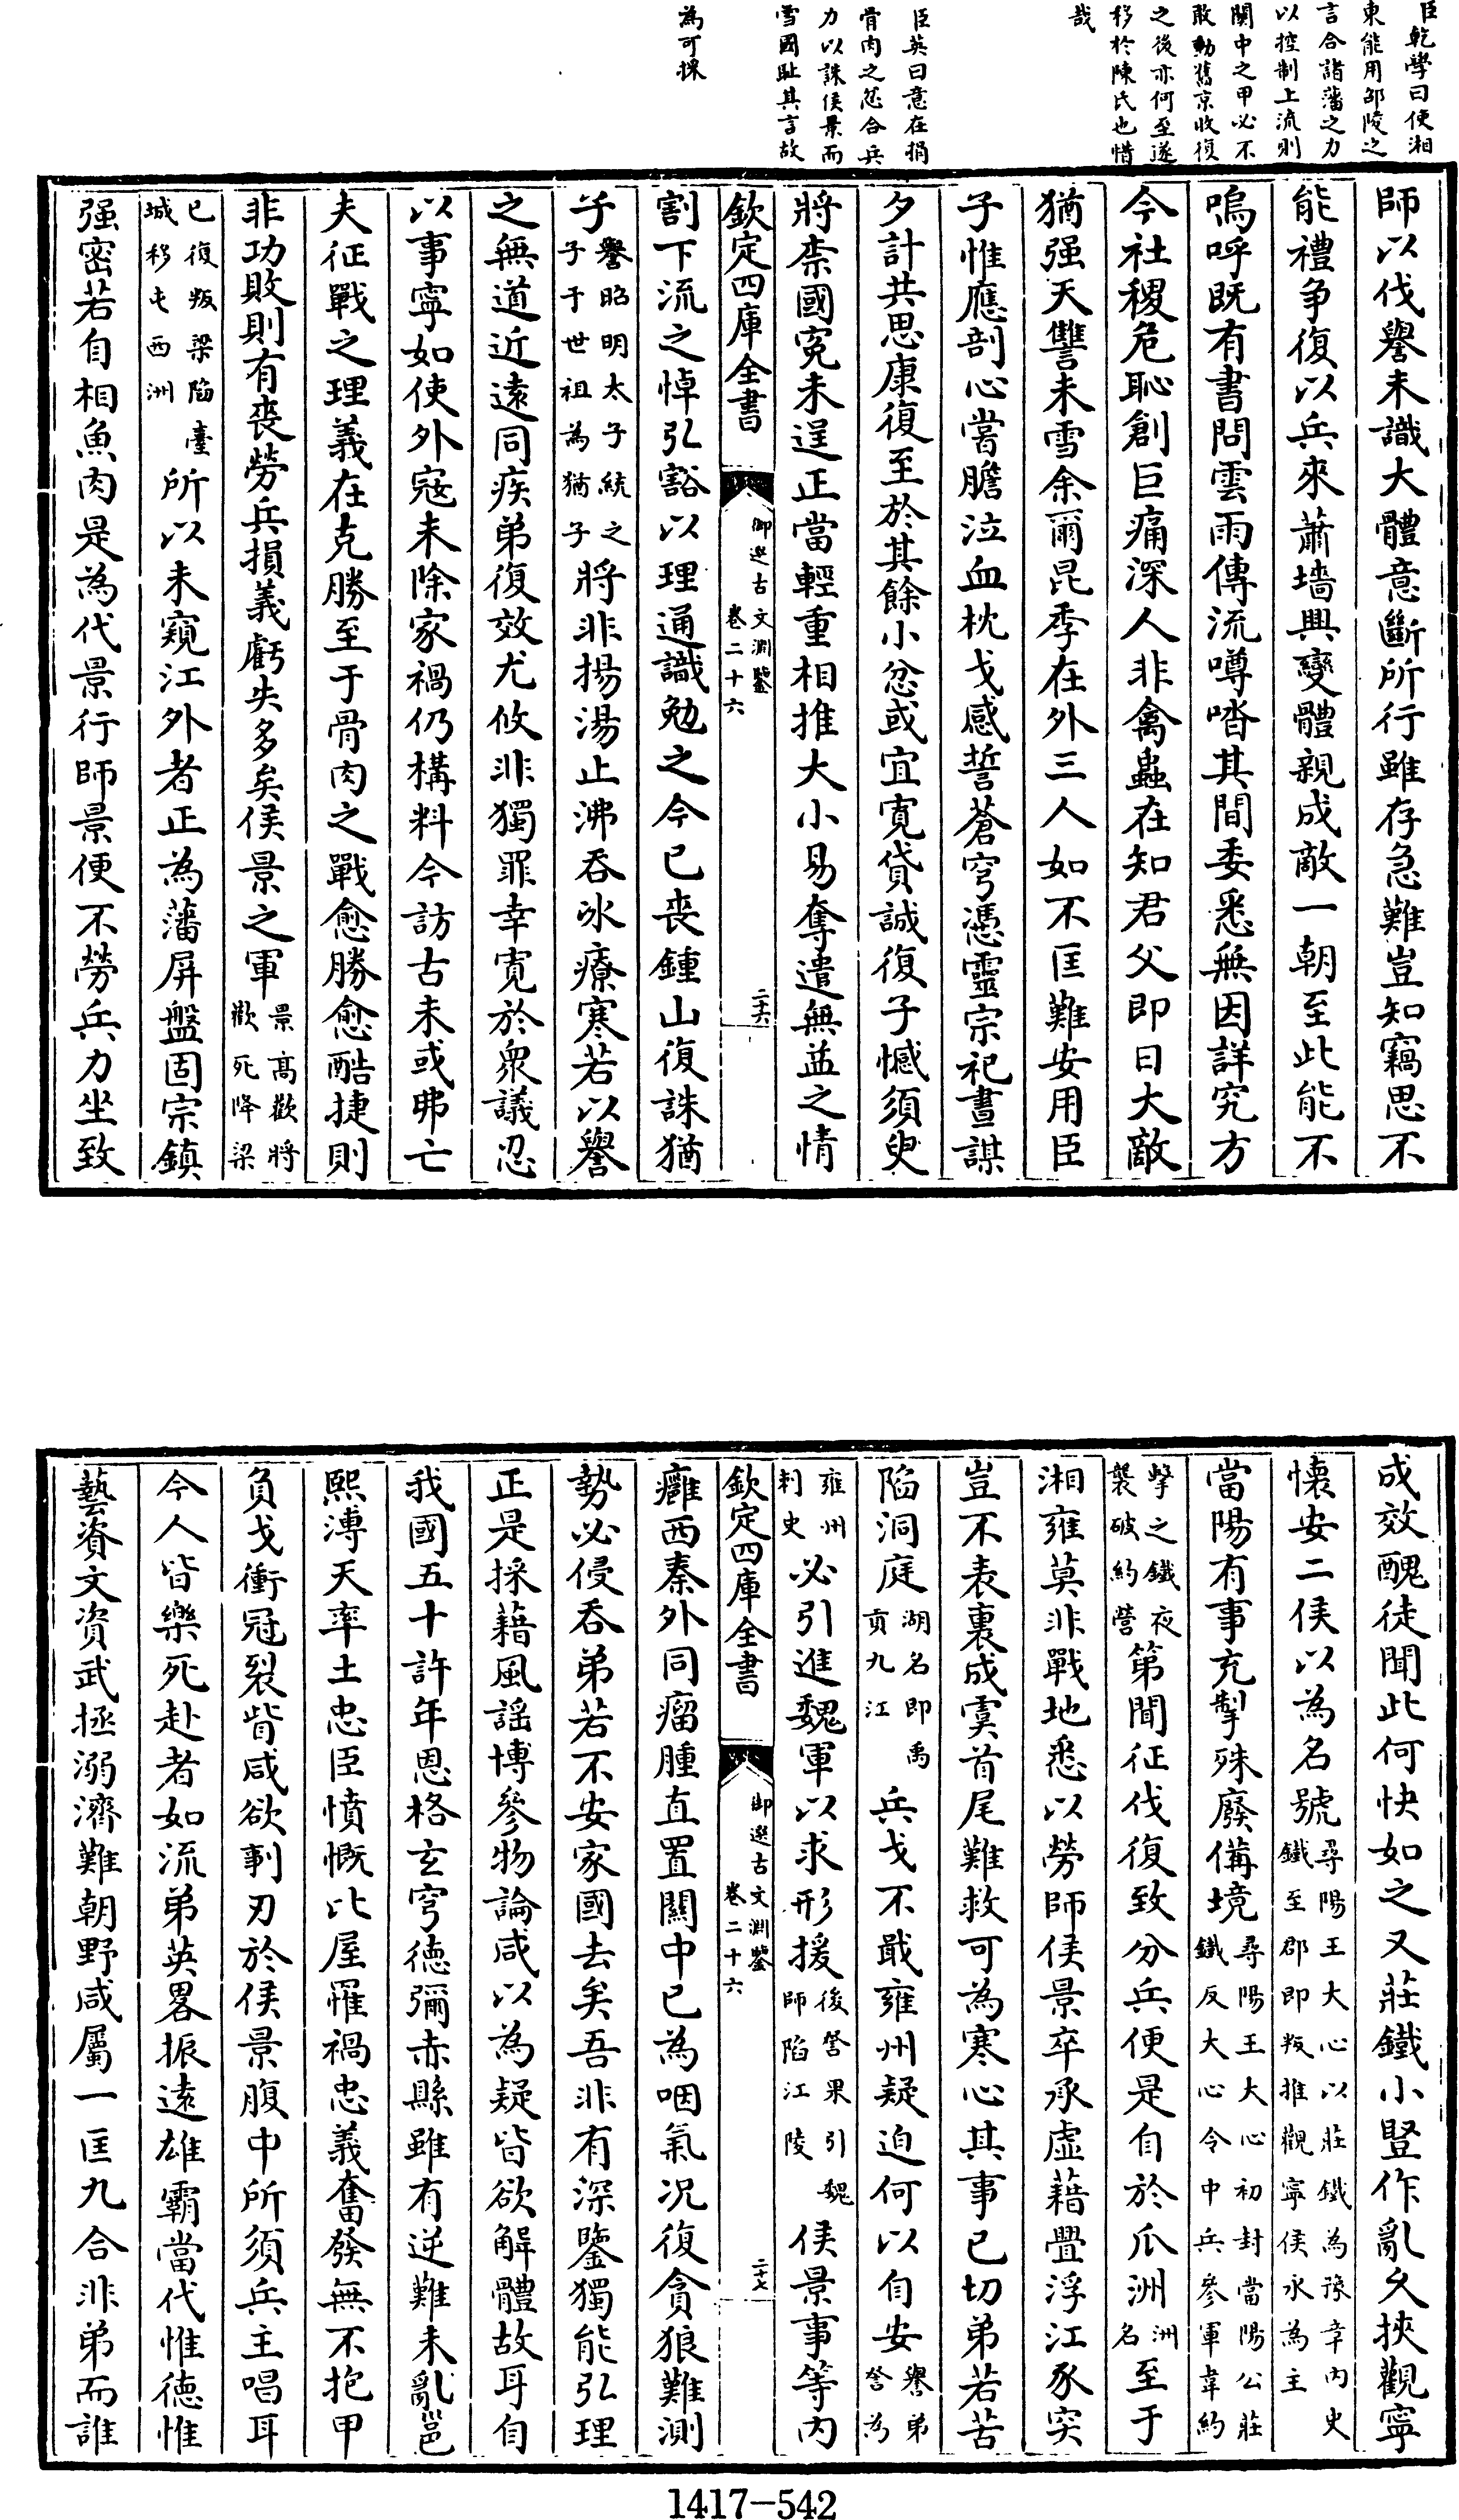 臣乾學曰使湘
東能用邵陵之
言合諸藩之力
以控制上流則
關中之甲必不
敢動舊京收復
之後亦何至遂
移於陳氏也惜
哉
臣英曰意在捐
骨肉之忿合兵
力以誅侯景而
雪國耻其言故
為可採
師以伐譽未識大體意斷所行雖存急難豈知竊思不
能禮争復以兵來蕭墻興變體親成敵一朝至此能不
嗚呼既有書問雲雨傳流噂喒其間委悉無因詳究方
今社稷危恥創巨痛深人非禽蟲在知君父即日大敵
猶强天讐未雪余爾昆季在外三人如不匡難安用臣
子惟應剖心嘗膽泣血枕戈感誓蒼穹憑靈宗祀晝謀
夕計共思康復至於其餘小忿或宜寛貸誠復子憾須臾
將柰國寃未逞正當輕重相推大小易奪遣無益之情
欽定四庫全書
御選古文淵鑒
卷二十六
二十六
割下流之悼弘豁以理通識勉之今已丧鍾山復誅猶
子譽昭明太子統之子于世祖為猶子將非揚湯止沸吞冰療寒若以譽
之無道近遠同疾弟復效尤攸非獨罪幸寛於衆議忍
以事寧如使外寇未除家禍仍構料今訪古未或弗亡
夫征戰之理義在克勝至于骨肉之戰愈勝愈酷捷則
非功敗則有丧勞兵損義虧失多矣侯景之軍景高歡將歡死降梁
已復叛梁陷臺城移屯西洲所以未窺江外者正為藩屏盤固宗鎮
强密若自相魚肉是為代景行師景便不勞兵力坐致
成效醜徒聞此何快如之又莊鐵小豎作亂久挾觀寧
懷安二侯以為名號尋陽王大心以莊鐵為豫章内史鐵至郡即叛推觀寧侯永為主
當陽有事充掣殊廢備境尋陽王大心初封當陽公莊鐵反大心令中兵參軍韋約
擊之鐵夜襲破約營第聞征伐復致分兵便是自於爪洲洲名至于
湘雍莫非戰地悉以勞師侯景卒承虚藉釁浮江豕突
豈不表裏成虞首尾難救可為寒心其事已切弟若苦
陷洞庭湖名即禹貢九江兵戈不戢雍州疑迫何以自安譽弟詧為
雍州刺史必引進魏軍以求形援後詧果引魏師陷江陵侯景事等内
欽定四庫全書
御選古文淵鑒
卷二十六
二十七
癰西秦外同瘤腫直置關中已為咽氣况復貪狼難測
勢必侵吞弟若不安家國去矣吾非有深鑒獨能弘理
正是採藉風謡博參物論咸以為疑皆欲解體故耳自
我國五十許年恩格玄穹德彌赤縣雖有逆難未亂邕
熙溥天率土忠臣憤慨比屋罹禍忠義奮發無不抱甲
負戈衝冠裂眥咸欲剚刃於侯景腹中所須兵主唱耳
今人皆樂死赴者如流弟英畧振遠雄霸當代惟德惟
藝資文資武拯溺濟難朝野咸屬一匡九合非弟而誰
1417-542